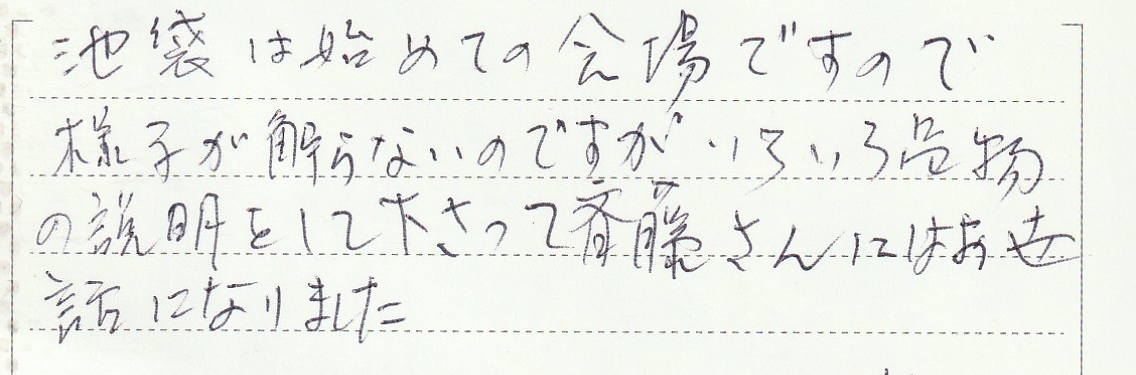 池袋は始めての会場ですので
様子が解らないのですがいろいろ品物
の説明をして下さって斉藤さんにはお世
話になりました